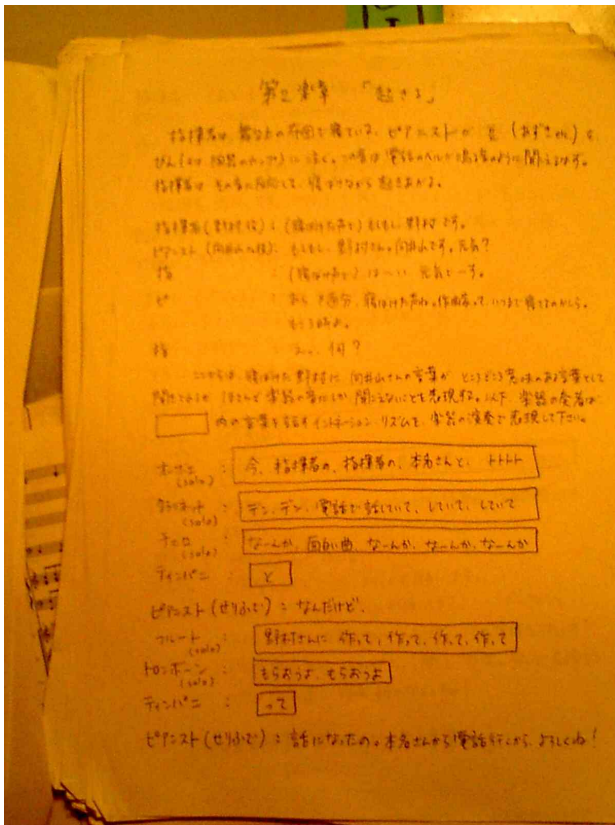 第2楽章 「起きる」
指揮者は、舞台上の布団で寝ている。ピアニストが 豆 (あずきetc) を
びん(又は 陶器のカップ)に 注ぐ。この音は 電話のベルが鳴る音のように聞こえるはず。
指揮者は その音に反応して、寝ぼけながら 起きあがる。
指揮者(野村役) : (寝ぼけた声で) もしもし、野村です。
ピアニスト(向井山さん役): もしもし、野村さん。向井山です。元気?
指 : (寝ぼけ声で) は〜い、元気で〜す。
ピ : あら 随分、寝ぼけた声ね。作曲家って、いつまで寝てるのかしら。
指 : えっ、何?
ここからは、寝ぼけた野村に 向井山さんの言葉が ところどころ意味のある言葉として
聞こえるが ほとんど 楽器の音にしか 聞こえないことを表現する。以下、楽器の奏者は
内の言葉を話すイントネーション、リズムで、楽器の演奏で表現して下さい。
オーボエ (solo) : 今、指揮者の、指揮者の、本名さんと、トトトト
クラリネット (solo) : デン、デン、電話で話していて、していて、していて
チェロ (solo) : なーんか、面白い曲、なーんか、なーんか、なーんか
ティンパニ : と
ピアニスト(せりふで) : なんだけど、
フルート (solo) : 野村さんに 作って、作って、作って、作って
トロンボーン (solo) : もらおうよ、もらおうよ
ティンパニ : って
ピアニスト(せりふで) : 話になったの。本名さんから電話行くから、よろしくね!